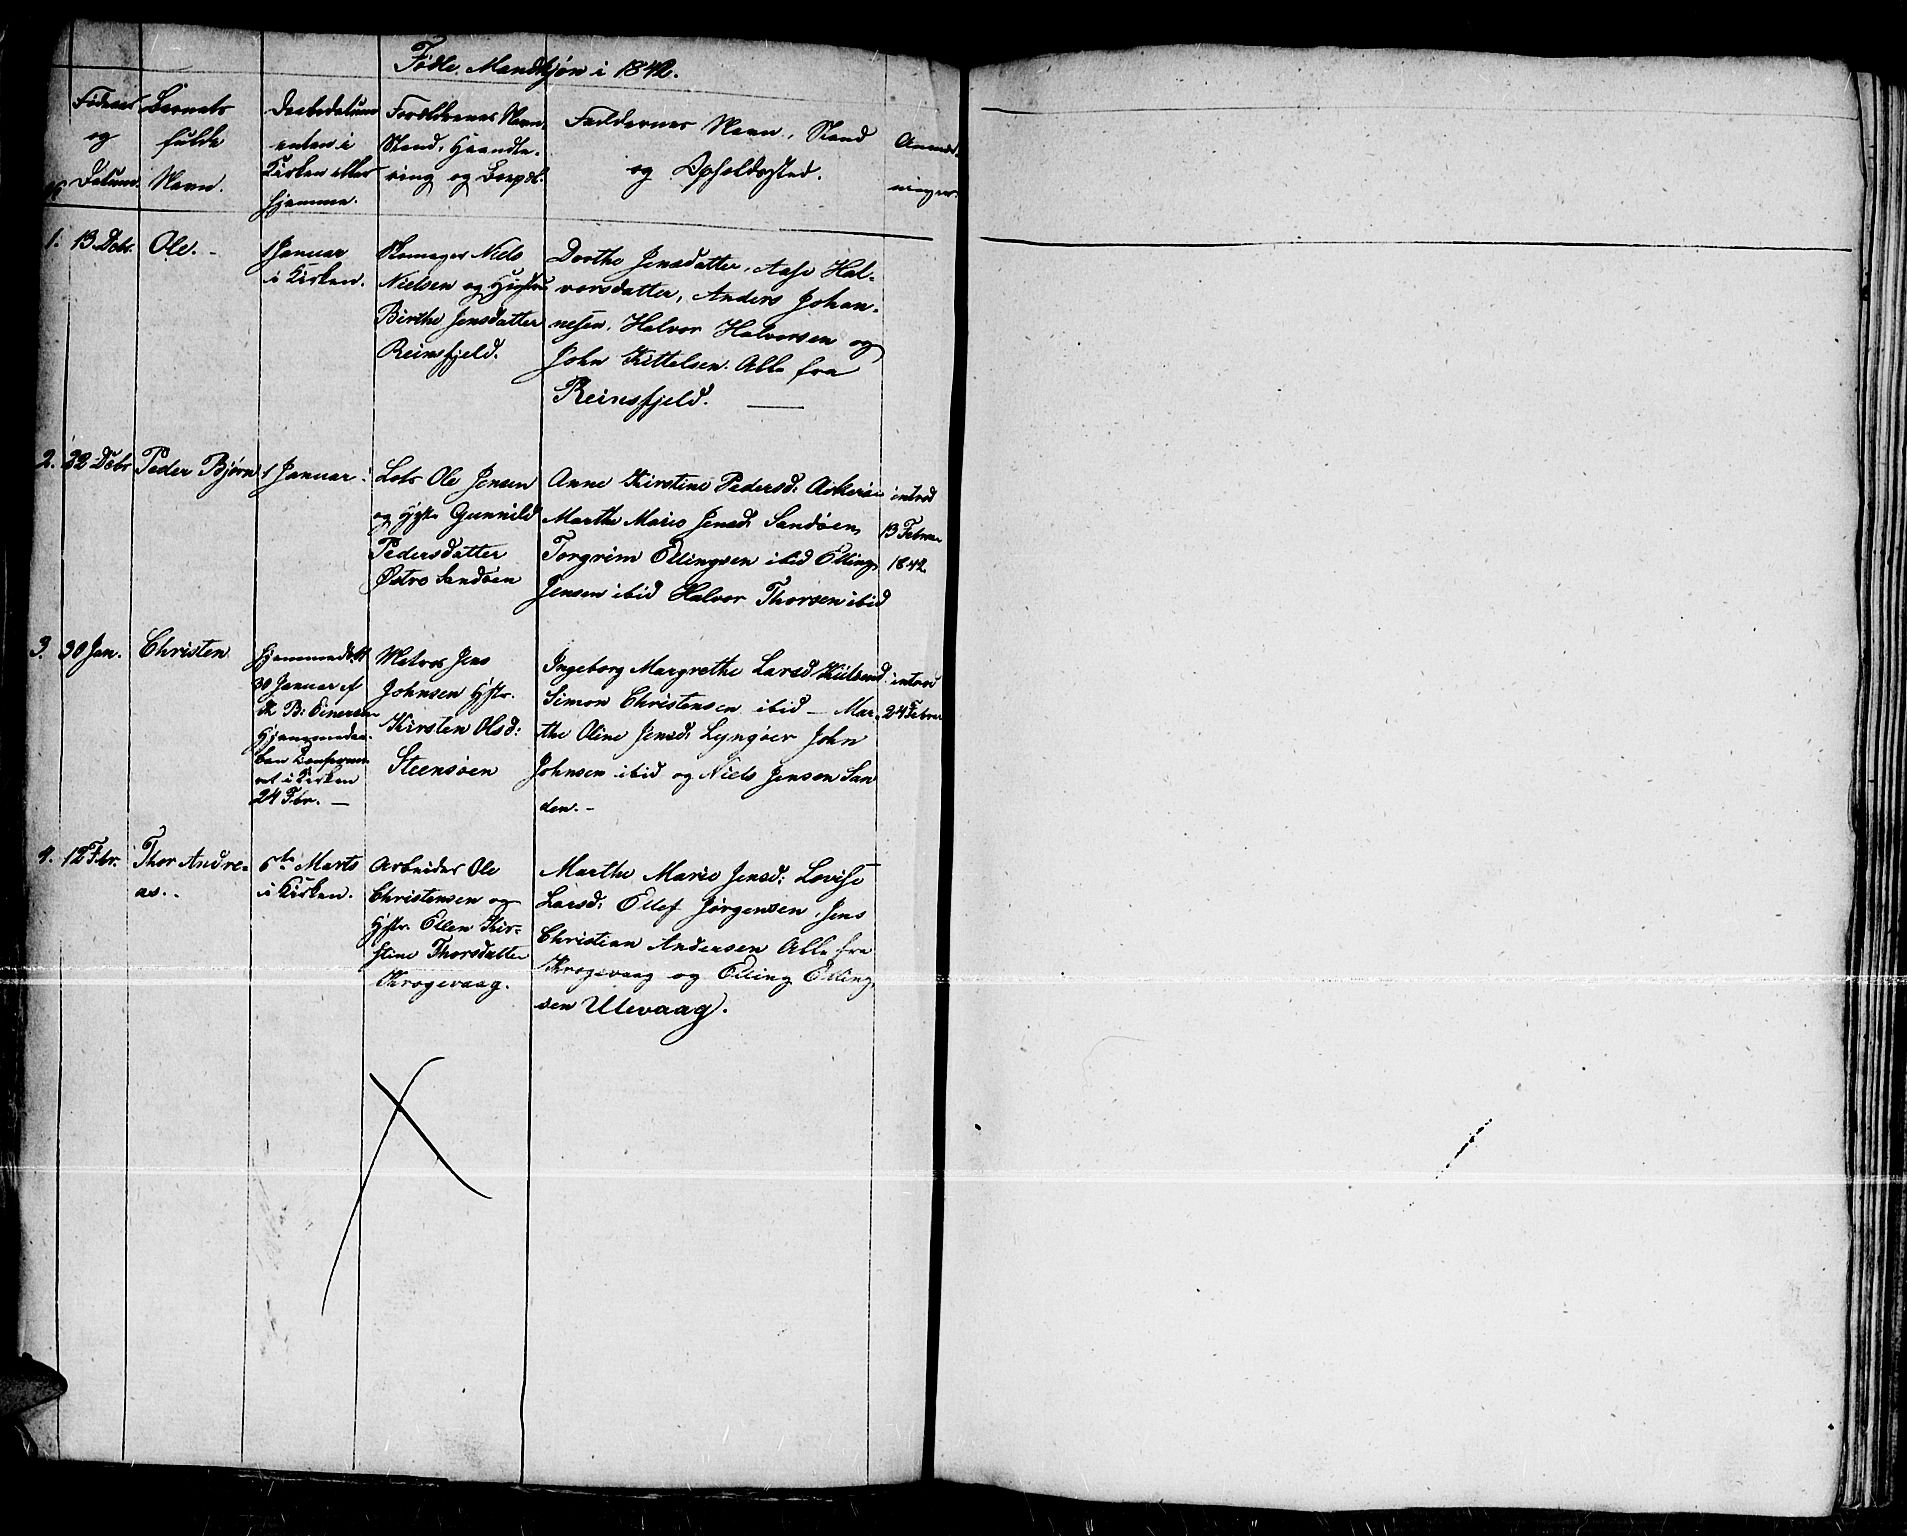 Fødte Mandkjøn i 1842.
No
Fødsels
og
Datum.
Barnets
fulde
Navn.
Daabsdatum
enten i
Kirken eller
hjemme.
Forældrenes Navn,
Stand, Haandte-
ring og Boepæl.
Faddernes Navn, Stand
og Opholdssted.
Anmærk-
ninger.
1.
13 Decbr.
Ole. -
1 Januar
i Kirken.
Skomager Niels
Nielsen og Hustru
Birthe Jensdatter
Reinsfjeld.
Dorthe Jensdatter, Aase Hal-
vorsdatter, Anders Johan-
nesen, Halvor Halvorsen og
John Kittelsen. Alle fra
Reinsfjeld. —
2.
22 Decbr
Peder Bjørn
1 Januar
Lots Ole Jensen
og Hgst. Gunnild
Pedersdatter
Østre Sandøen
Anne Kirstine Pedersd: Askerøe
Marthe Marie Jensd: Sandøen,
Torgrim Ellingsen ibid Elling
Jensen ibid Halvor Thorsen ibid
introd
13 Februar
1842
3.
30 Jan.
Christen
Hjemmedøbt
30 Januar af
K B: Einersen
Hjemmedaa-
ben Confirme-
ret i Kirken
24 Fbr. —
Matros Jens
Johnsen Hstr.
Kirsten Olsd:
Steensøen
Ingeborg Margrethe Larsd
Simon Christensen ibid — Mar-
the Oline Jensd: Lyngøer John
Johnsen ibid og Niels Jensen San
den. -
introd
24 Februar
4.
12 Fbr.
Thor Andre-
as. -
6te Marts
i Kirken.
Arbeider Ole
Christensen og
Hstr. Ellen Kir-
stine Thorsdatter
Krogevaag.
Marthe Marie Jensd: Lovise
Larsd: Ellef Jørgensen, Jens
Christian Andersen Alle fra
Krogevaag og Elling Elling-
sen Ulevaag.